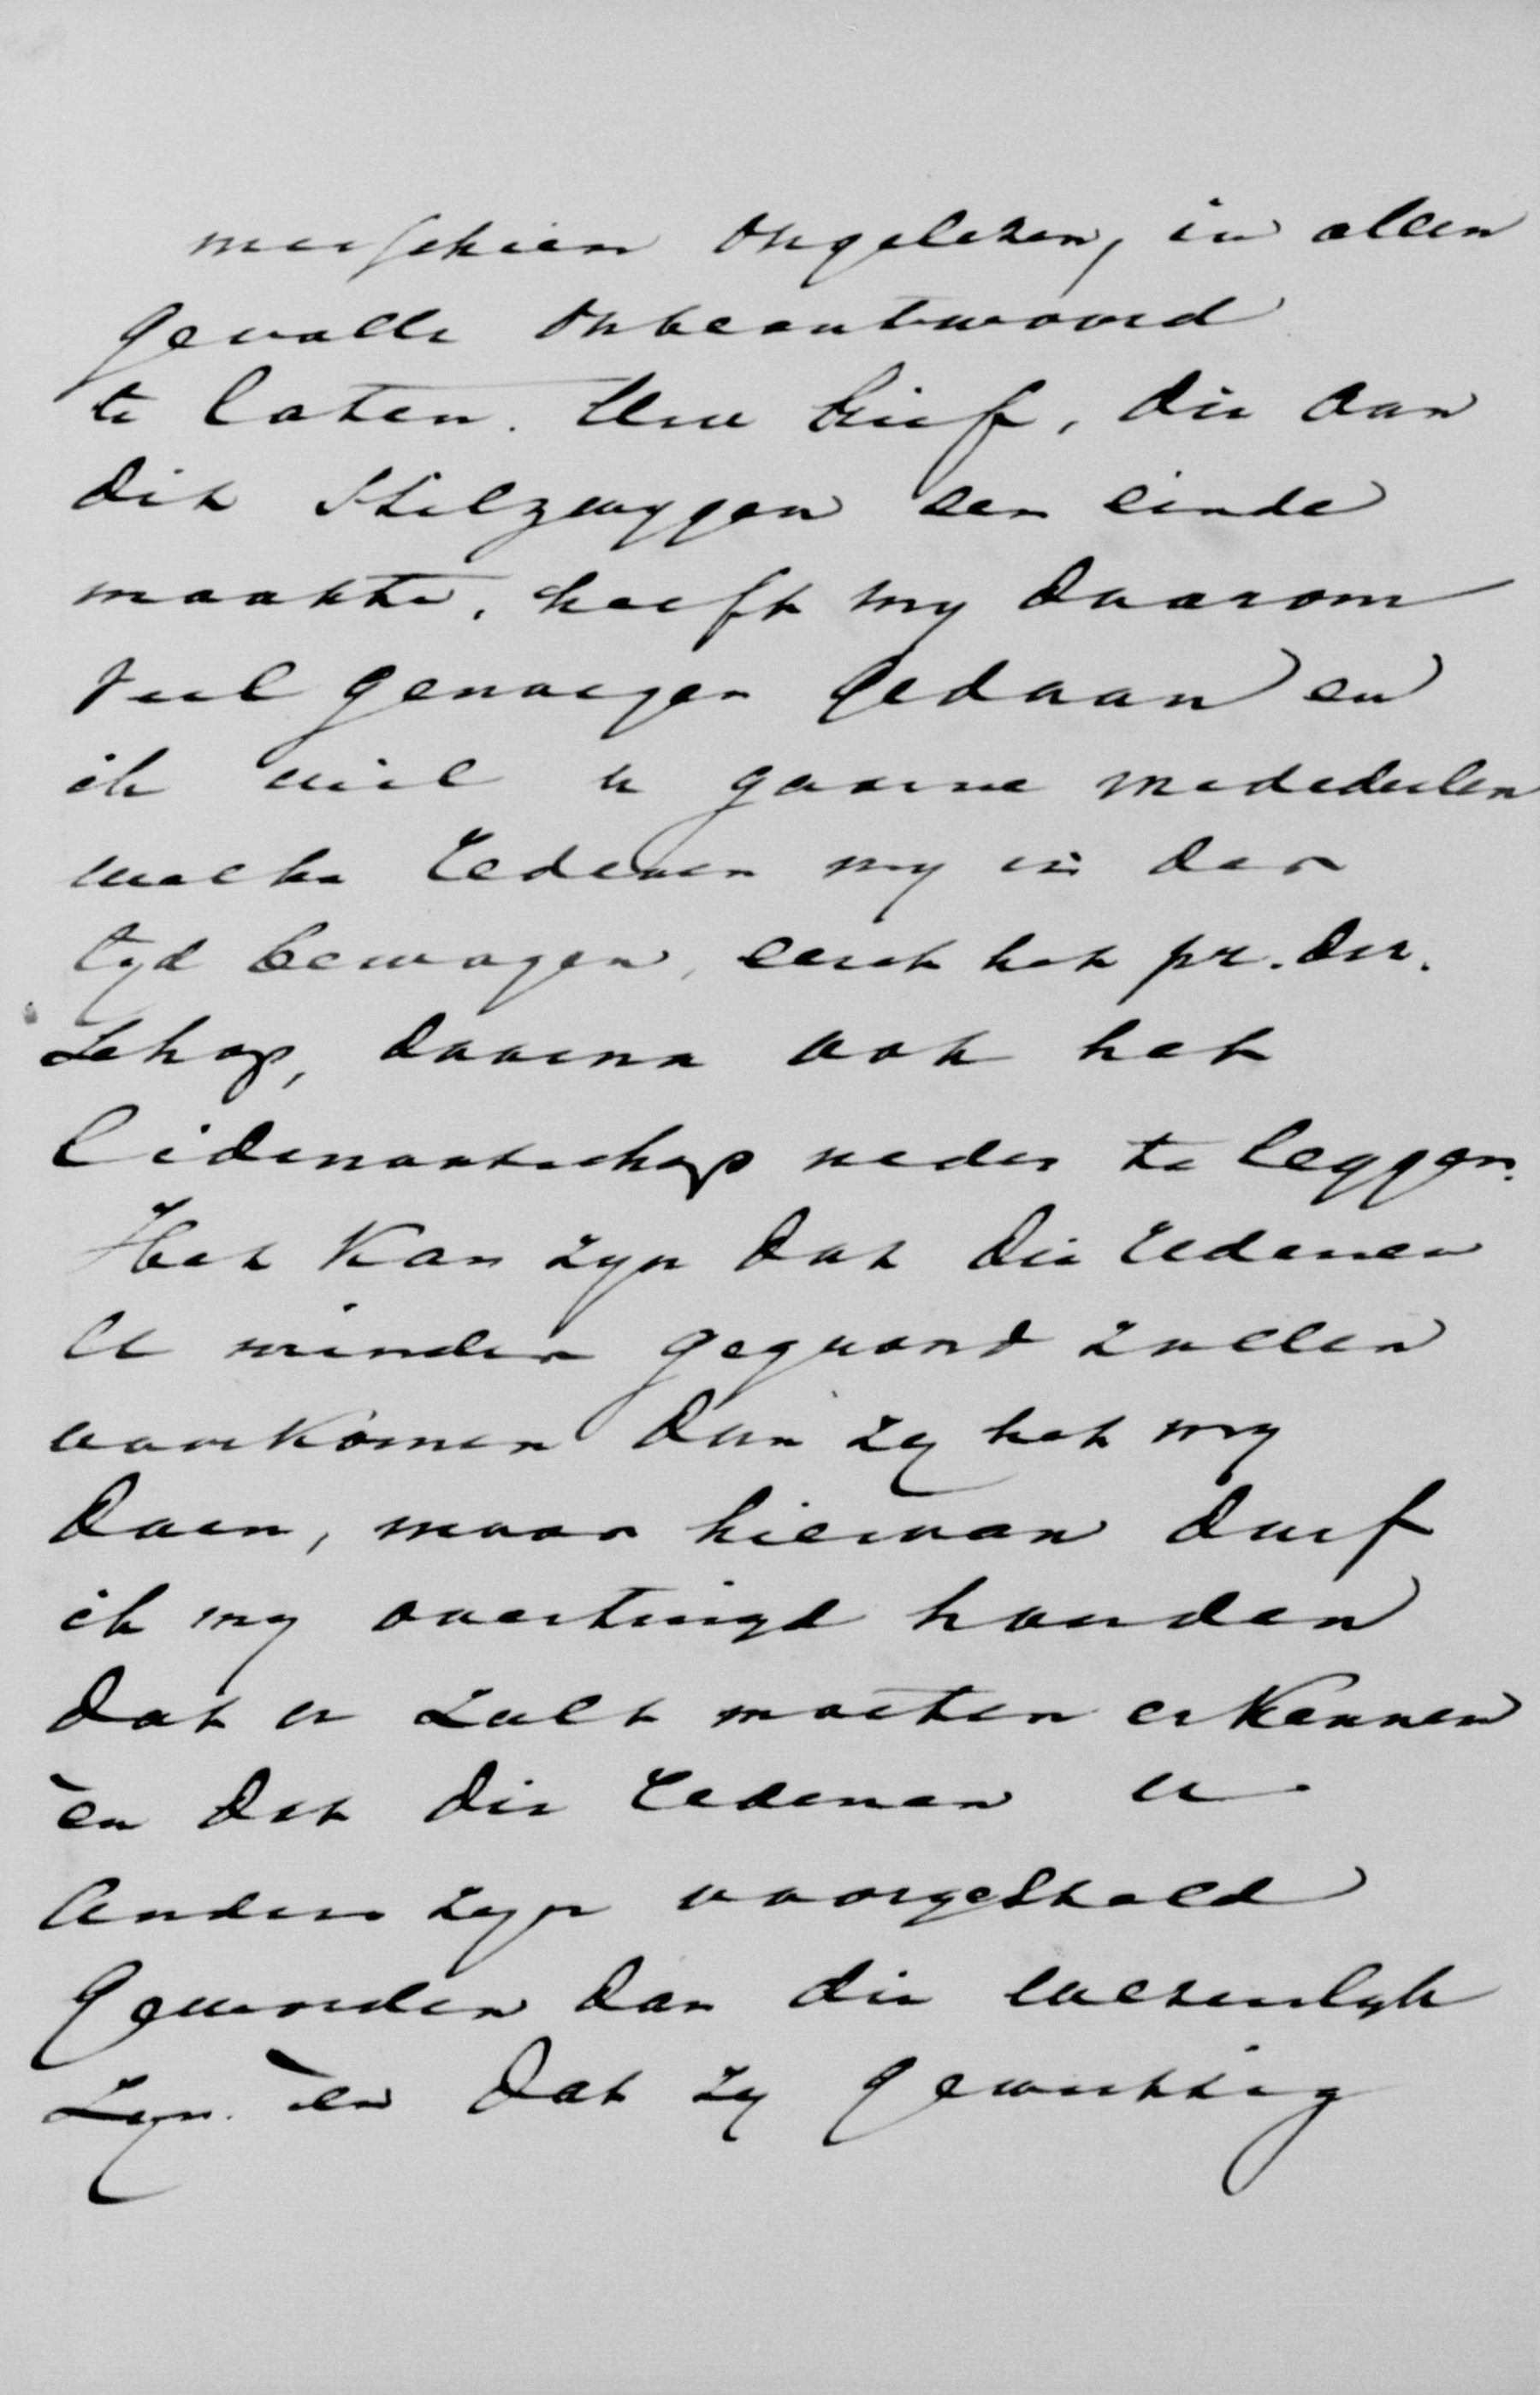 misschien ongelezen, in allen
gevalle onbeantwoord
te laten. Uw brief, die aan
dit stilzwygen een einde
maakte, heeft my daarom
veel genoegen gedaan en
ik wil u gaarne mededeelen
welke redenen my in der
tyd bewogen, eerst het pr. Dir.
schap, daarna ook het
lidmaatschap neder te leggen.
Het kan zyn dat die redenen
U minder gegrond zullen
voorkomen dan zy het my
doen, maar hiervan durf
ik my overtuigd houden
dat u zult moeten erkennen
èn dat die redenen u
anders zyn voorgesteld
geworden dan die wezenlyk
zyn. èn dat zy gewichtig